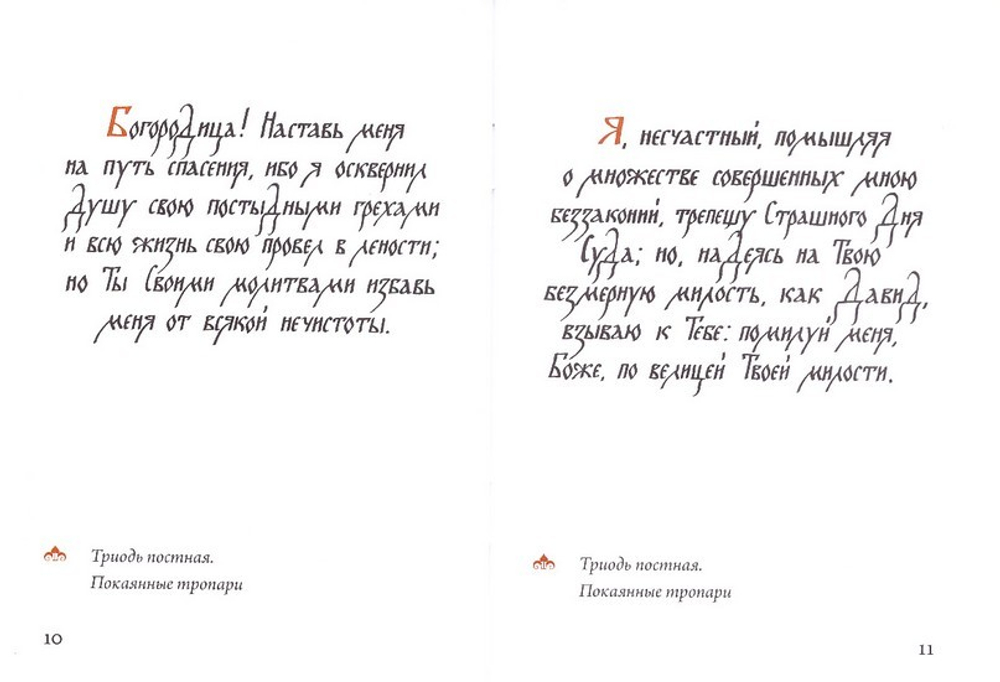 Богородица! Наставь меня
на путь спасения, ибо я осквернил
душу свою постыдными грехами
и всю жизнь свою провел в лености;
но Ты Своими молитвами избавь
меня от всякой нечистоты.
Триодь постная.
Покаянные тропари
10
Я, несчастный, помышляя
о множестве совершенных мною
беззаконий, трепещу Страшного Дня
Суда; но, надеясь на Твою
безмерную милость, как Давид,
взываю к Тебе: помилуй меня,
Боже, по велицей Твоей милости.
Триодь постная.
Покаянные тропари
11